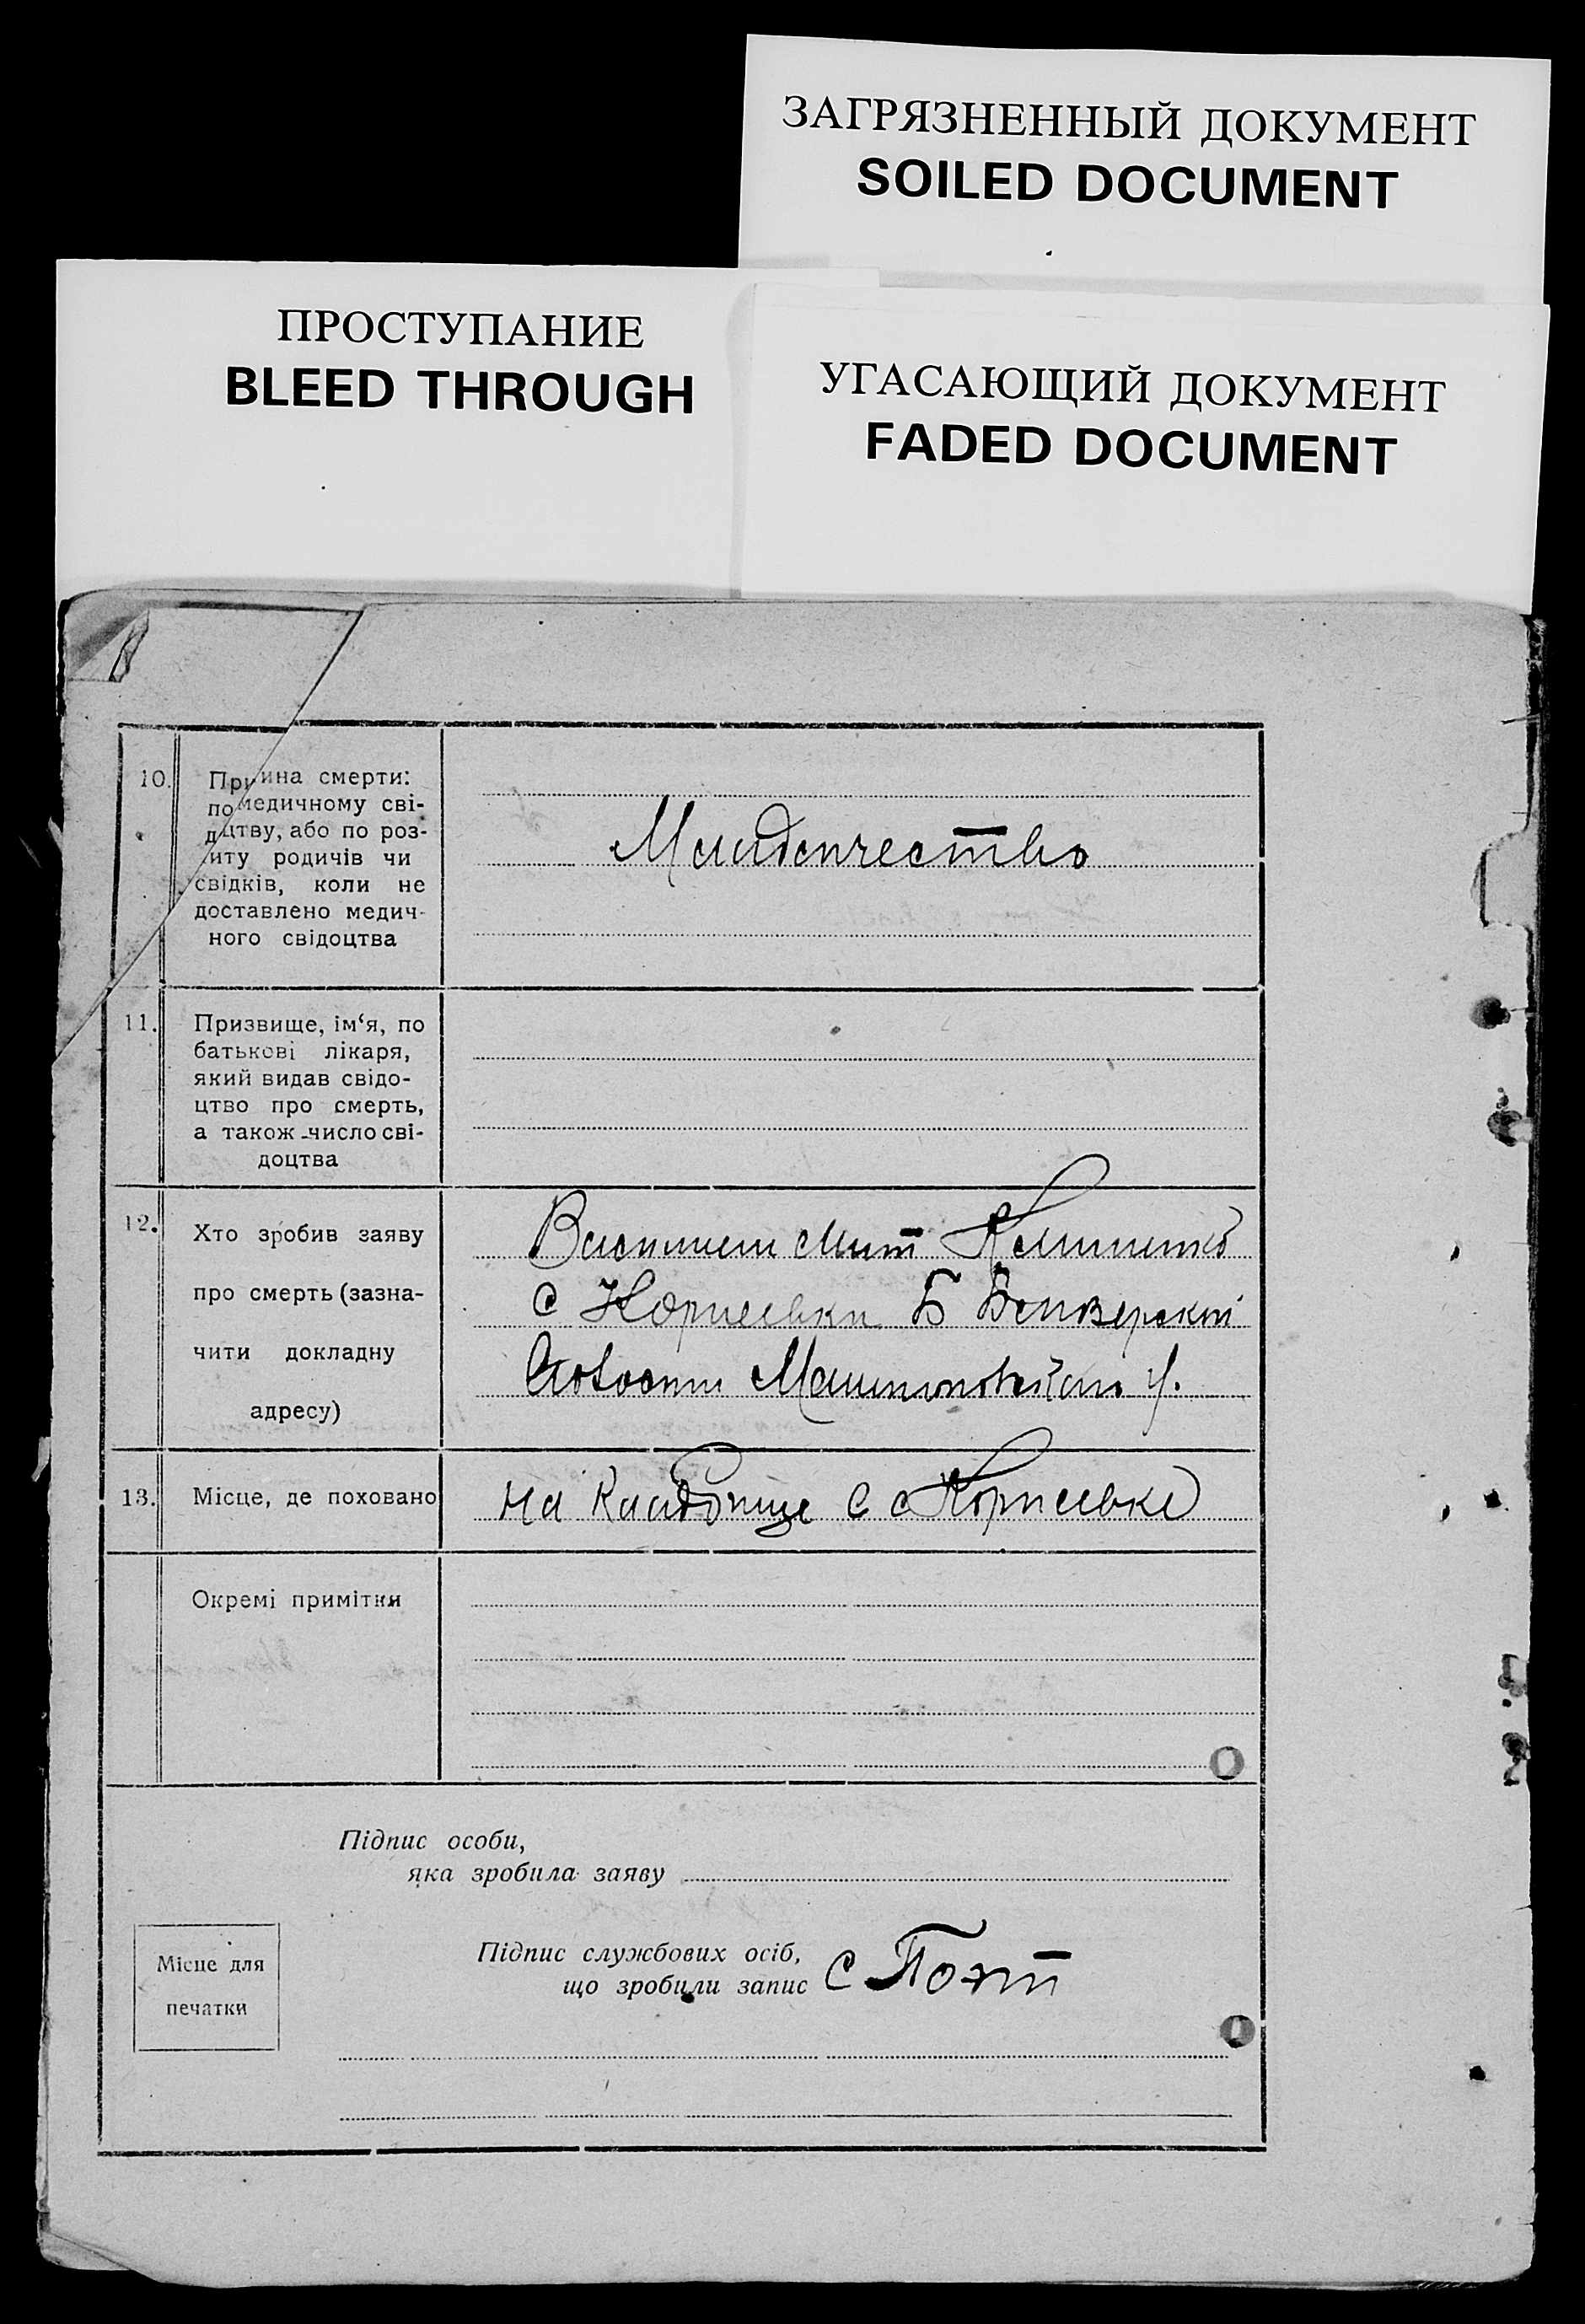 ЗАГРЯЗНЕННЫЙ ДОКУМЕНТ
SOILED DOCUMENT
ПРОСТУПАНИЕ
BLEED THROUGH
УГАСАЮЩИЙ ДОКУМЕНТ
FADED DOCUMENT
10.
Причина смерти:
по медичному сві-
дцтву, або по роз-
питу родичів чи
свідків, коли не
доставлено медич-
ного свідоцтва
Младенчество
11.
Призвище, ім‘я, по
батькові лікаря,
який видав свідо-
цтво про смерть,
а також число сві-
доцтва
12.
Хто зробив заяву
про смерть (зазна-
чити докладну
адресу)
с Б
13.
Місце, де поховано
на Кладбище с
Окремі примітки
Підпис особи,
яка зробила заяву
Місце для
печатки
Підпис службових осіб,
що зробили запис